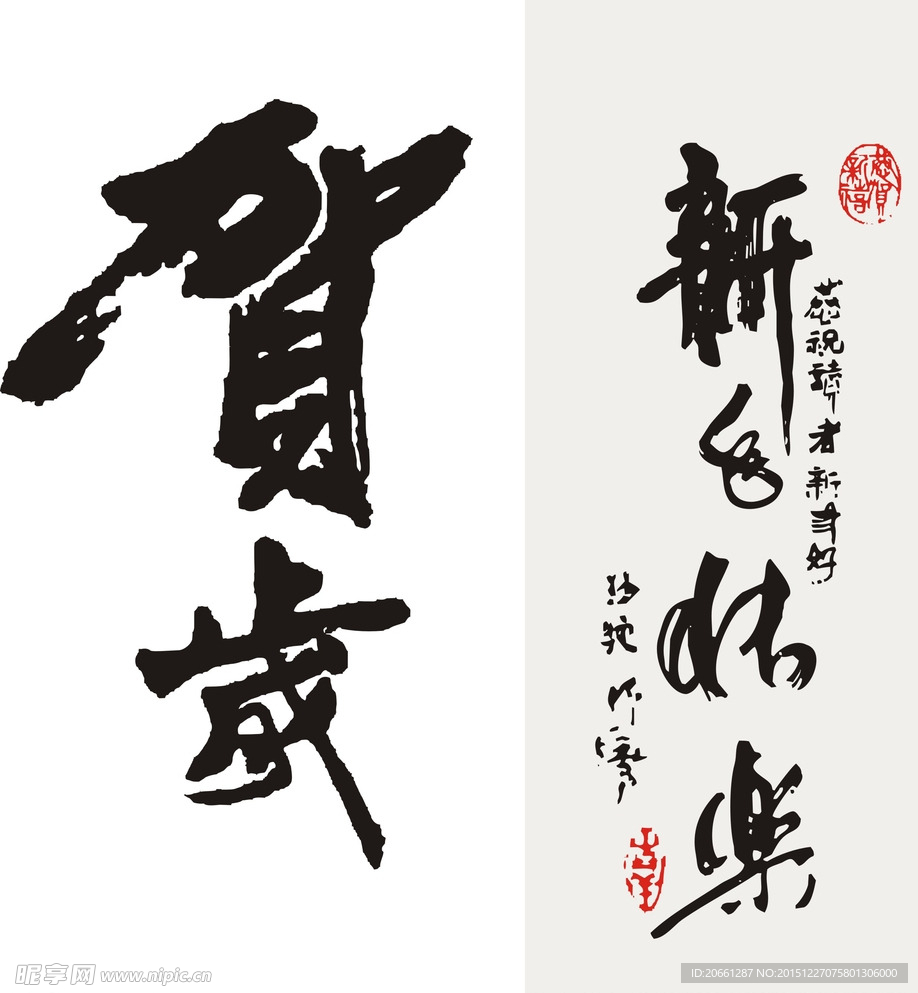 賀歲
恭賀新禧
恭祝讀者新年好
新年快樂
昵享网 www.nipic.cn
ID:20661287 NO:20151227075801306000